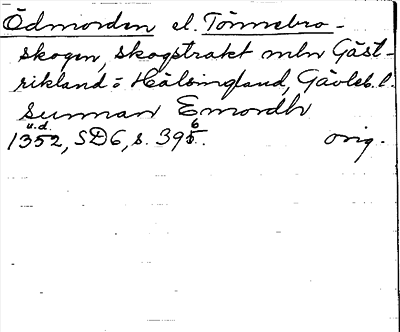 Ödmorden el. Tönnebro-
skogen, skogstrakt mln Gäst-
rikland o Hälsingland, Gävleb. l.
sunnan Emordh
u.d.
1352, SD6, s. 395. 6 orig.